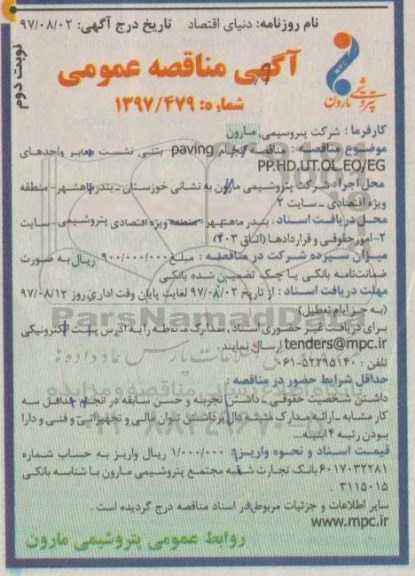 نام روزنامه: دنیای اقتصاد تاریخ درج آگهی: ۹۷/۰۸/۰۲
نوبت دوم
آگهی مناقصه عمومی
شماره: ۱۳۹۷/۴۷۹
پتروشیمی مارون
کارفرما: شرکت پتروسیمی مارون
موضوع مناقصه: مناقصه انجام paving بتنی نشست معابر واحدهای
PP.HD.UT.OL.EO/EG
محل اجرا: شرکت پتروشیمی مارون به نشانی خوزستان - بندرماهشهر - منطقه
ویژه اقتصادی - سایت ۲
محل دریافت اسناد: بندر ماهشهر - منطقه ویژه اقتصادی پتروشیمی - سایت
۲- امور حقوقی و قراردادها (اتاق ۲۰۳)
میزان سپرده شرکت در مناقصه: مبلغ ۹۰۰/۰۰۰/۰۰۰ ریال به صورت
ضمانت‌نامه بانکی یا چک تضمین شده بانکی
مهلت دریافت اسناد: از تاریخ ۹۷/۰۸/۰۲ لغایت پایان وقت اداری روز ۹۷/۰۸/۱۲
(به جز ایام تعطیل)
برای دریافت غیر حضوری اسناد، مدارک مربوطه را به آدرس پست الکترونیکی
tenders@mpc.ir ارسال نمایند.
تلفن: ۰۶۱-۵۲۲۹۵۱۴۰
حداقل شرایط حضور در مناقصه:
داشتن شخصیت حقوقی - داشتن تجربه و حسن سابقه در انجام حداقل سه
کار مشابه - ارائه مدارک مثبته دال بر داشتن توان مالی و تجهیزاتی و فنی و دارا
بودن رتبه ۴ ابنیه.
قیمت اسناد و نحوه واریز: ۱/۰۰۰/۰۰۰ ریال واریز به حساب شماره
۶۰۱۷۰۳۲۲۸۱ بانک تجارت شعبه مجتمع پتروشیمی مارون با شناسه بانکی
۳۱۱۵۰۱۵.
سایر اطلاعات و جزئیات مربوط در اسناد مناقصه درج گردیده است.
www.mpc.ir
روابط عمومی پتروشیمی مارون
ParsNamadData